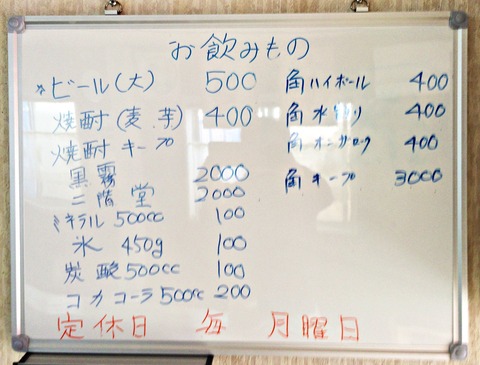 お飲みもの
*ビール(大) 500
焼酎(麦.芋) 400
焼酎キープ
黒霧 2000
二階堂 2000
ミネラル500cc 100
氷 450g 100
炭酸500cc 100
コカコーラ500cc 200
角ハイボール 400
角水割り 400
角オンザロック 400
角キープ 3000
定休日 毎月曜日